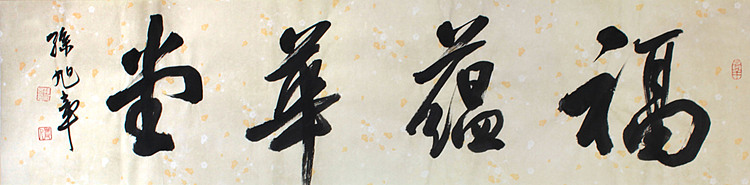 福蕴華堂
孫旭